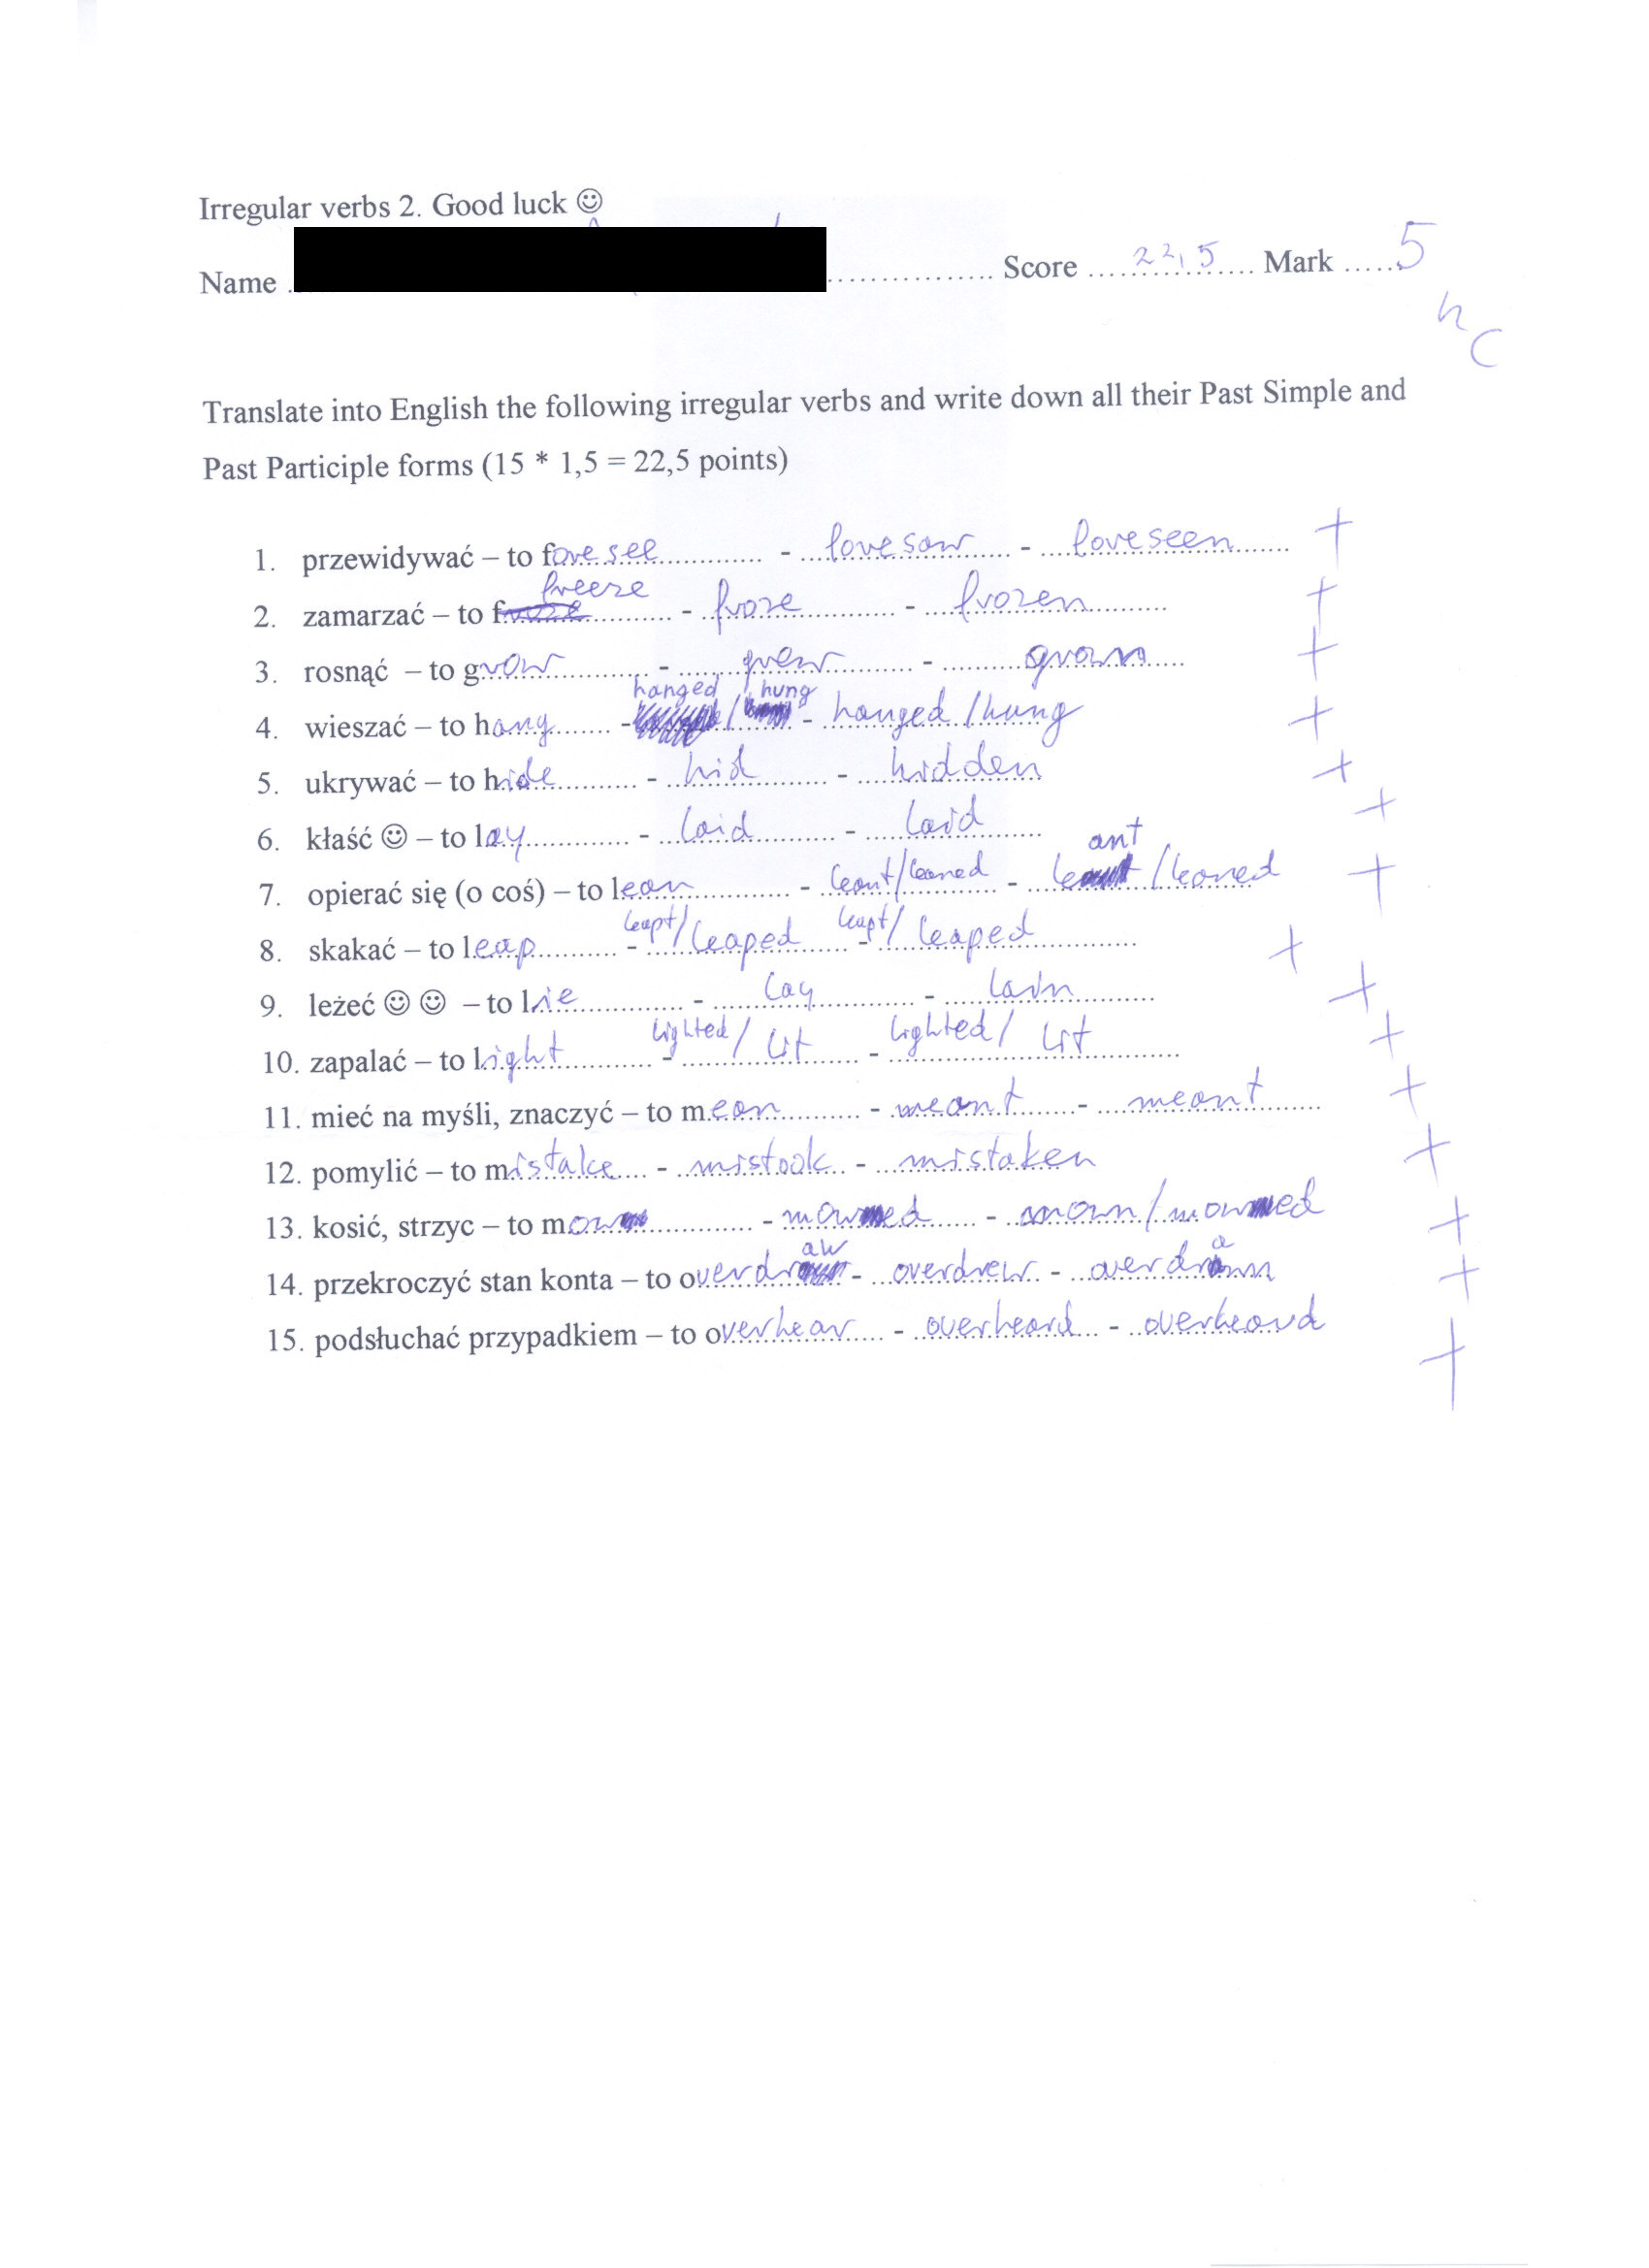 Irregular verbs 2. Good luck ☺
Name ................ Score ....22,5.... Mark ......5
nc
Translate into English the following irregular verbs and write down all their Past Simple and
Past Participle forms (15 * 1,5 = 22,5 points)
1. przewidywać – to foresee ............ - foresaw ...... - foreseen ...... +
2. zamarzać – to freeze ............ - froze ............ - frozen ............ +
3. rosnąć – to grow ............ - grew ............ - grown ...... +
4. wieszać – to hang ...... - hanged / hung - hanged / hung +
5. ukrywać – to hide ......... - hid ......... - hidden +
6. kłaść ☺ – to lay ............ - laid ............ - laid ............ +
7. opierać się (o coś) – to lean ............ - leant/leaned - leant / leaned +
8. skakać – to leap ......... - leapt/ leaped ...... - leapt/ leaped ............ +
9. leżeć ☺ ☺ – to lie ............ - lay ............ - lain ............ +
10. zapalać – to light ............ - lighted/ lit ...... - lighted/ lit ............ +
11. mieć na myśli, znaczyć – to mean ......... - meant ...... - meant ...... +
12. pomylić – to mistake .... - mistook .. - mistaken +
13. kosić, strzyc – to mow ............ - mowed ...... - mown / mowed +
14. przekroczyć stan konta – to overdraw - overdrew - overdrawn +
15. podsłuchać przypadkiem – to overhear .... - overheard .. - overheard +